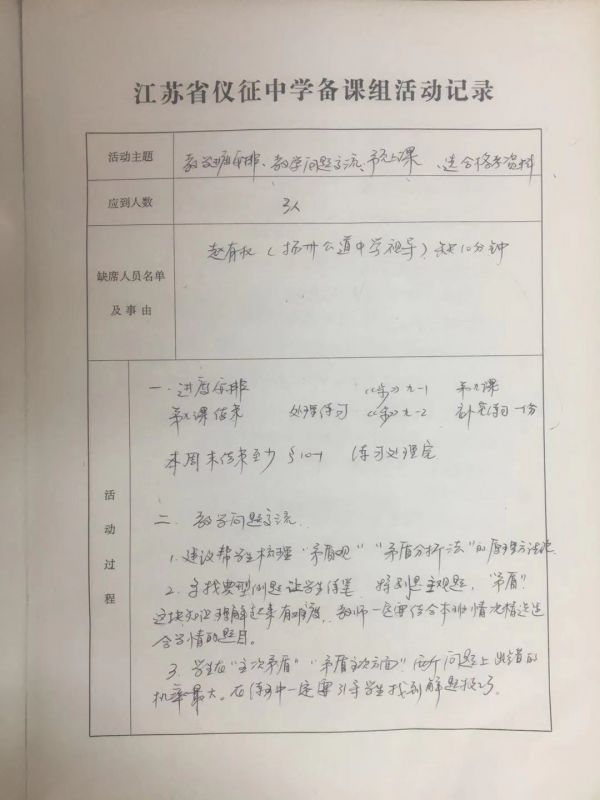 江苏省仪征中学备课组活动记录
活动主题 教学进度安排、教学问题交流、 上课 、选合格考资料
应到人数 3人
缺席人员名单 赵有权（扬州公道中学视导）缺10分钟
及事由
一.进度安排 《步》九-1 第九课
第九课结束 处理练习 《步》九-2 补充练习一份
本周末结束至少 §10-1 练习处理完
活动过程
二. 教学问题交流.
1.建议帮学生梳理“矛盾观”“矛盾分析法”的原理方法论
2.寻找典型例题让学生练笔 特别是主观题，“矛盾”
这块知识理解起来有难度，教师一定要结合本班情况精选适
合学情的题目。
3.学生在“主次矛盾”“矛盾主次方面”两个问题上出错的
机率最大。在练习中一定要引导学生找到解题技巧。